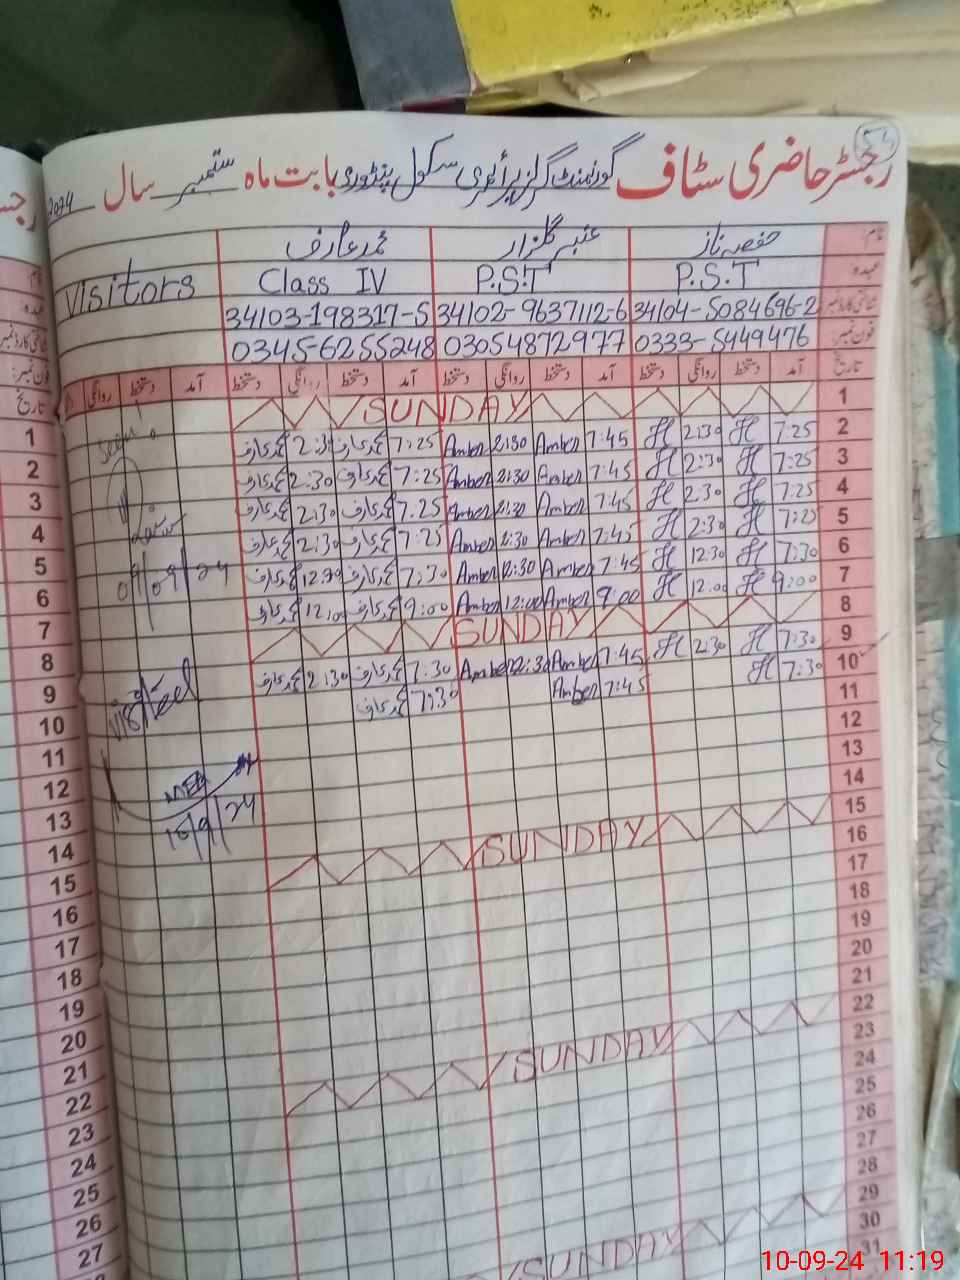 رجسٹر حاضری سٹاف گورنمنٹ گرلز پرائمری سکول پنڈوری بابت ماہ ستمبر سال 2024
نام: حفصہ ناز عنبر گلزار محمد عارف
عہدہ P.S.T P.S.T Class IV Visitors
شناختی کارڈ نمبر 34104-5084696-2 34102-9637112-6 34103-198317-5
فون نمبر: 0333-5449476 03054872977 0345-6255248
تاریخ آمد دستخط روانگی دستخط آمد دستخط روانگی دستخط آمد دستخط روانگی دستخط آمد دستخط روانگی
1 SUNDAY
2 7:25 H 2:30 H 7:45 Amber 2:30 Amber 7:25 محمد عارف 2:30 محمد عارف
3 7:25 H 2:30 H 7:45 Amber 2:30 Amber 7:25 محمد عارف 2:30 محمد عارف
4 7:25 H 2:30 H 7:45 Amber 2:30 Amber 7:25 محمد عارف 2:30 محمد عارف
5 7:25 H 2:30 H 7:45 Amber 2:30 Amber 7:25 محمد عارف 2:30 محمد عارف
6 7:30 H 12:30 H 7:45 Amber 12:30 Amber 7:30 محمد عارف 12:30 محمد عارف
7 9:00 H 12:00 H 9:00 Amber 12:00 Amber 9:00 محمد عارف 12:00 محمد عارف
8 SUNDAY
9 7:30 H 2:30 H 7:45 Amber 2:30 Amber 7:30 محمد عارف 2:30 محمد عارف
10 7:30 H 7:45 Amber 7:30 محمد عارف
11
12
13
14
15 SUNDAY
16
17
18
19
20
21
22 SUNDAY
23
24
25
26
27
28
29 SUNDAY
30
31
Seen
09/09/24
MEA
10/9/24
رجسٹر
نام:
عہدہ
شناختی کارڈ نمبر
فون نمبر:
تاریخ
1
2
3
4
5
6
7
8
9
10
11
12
13
14
15
16
17
18
19
20
21
22
23
24
25
26
27
10-09-24 11:19